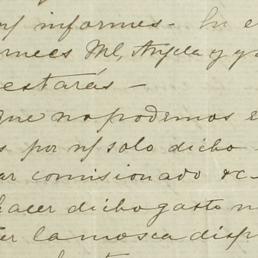 informes - En e
Ml, Angela y y
estarás -
que no podemos e
s por sí solo dicho
ar comisionado &c-
hacer dicho gasto n
la mosca disp